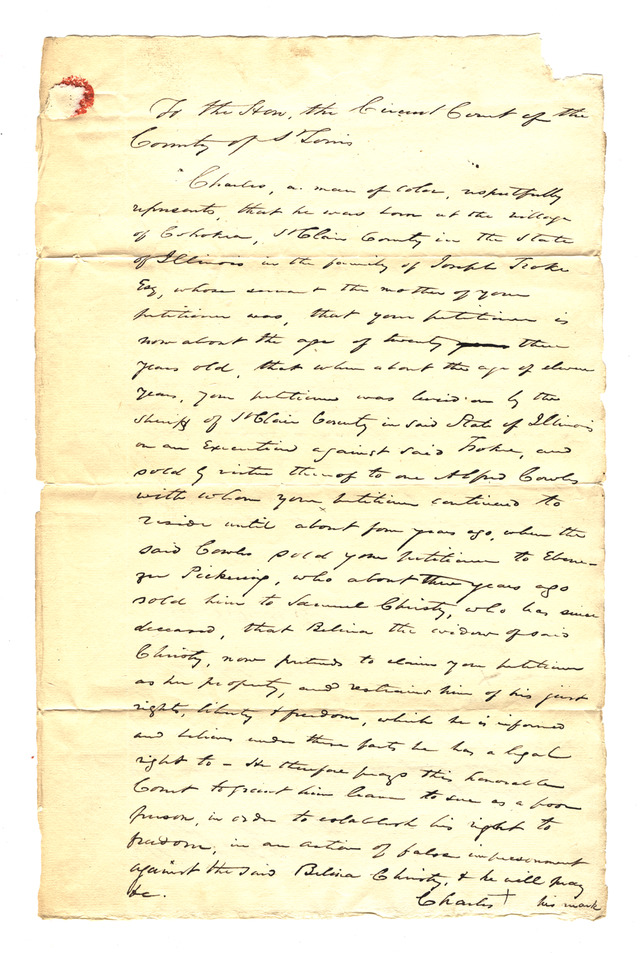 To the Hon, the Circuit Court of the
County of St Louis
Charles, a man of color, respectfully
represents, that he was born at the village
of Cohokia, St Clair County in the State
of Illinois in the family of Joseph
Esq, whose servant the mother of your
petitioner was, that your petitioner is
now about the age of twenty three
years old, that when about the age of eleven
years, your petitioner was levied on by the
Sheriff of St Clair County in said State of Illinois
on an Execution against said and
sold by virtue thereof to one Alfred Cowls
with whom your petitioner continued to
reside until about four years ago, when the
said Cowls sold your petitioner to Ebene-
zer Pickering, who about three years ago
sold him to Samuel Christy, who has since
deceased, that Belina the widow of said
Christy, now pretends to claim your petitioner
as her property, and restrains him of his just
rights, liberty & freedom, which he is informed
and believes under these facts he has a legal
right to – He therefore prays this honorable
Court to grant him leave to sue as a poor
person, in order to establish his right to
freedom, in an action of false imprisonment
against the said Belina Christy, & he will pray
&c. Charles + his mark